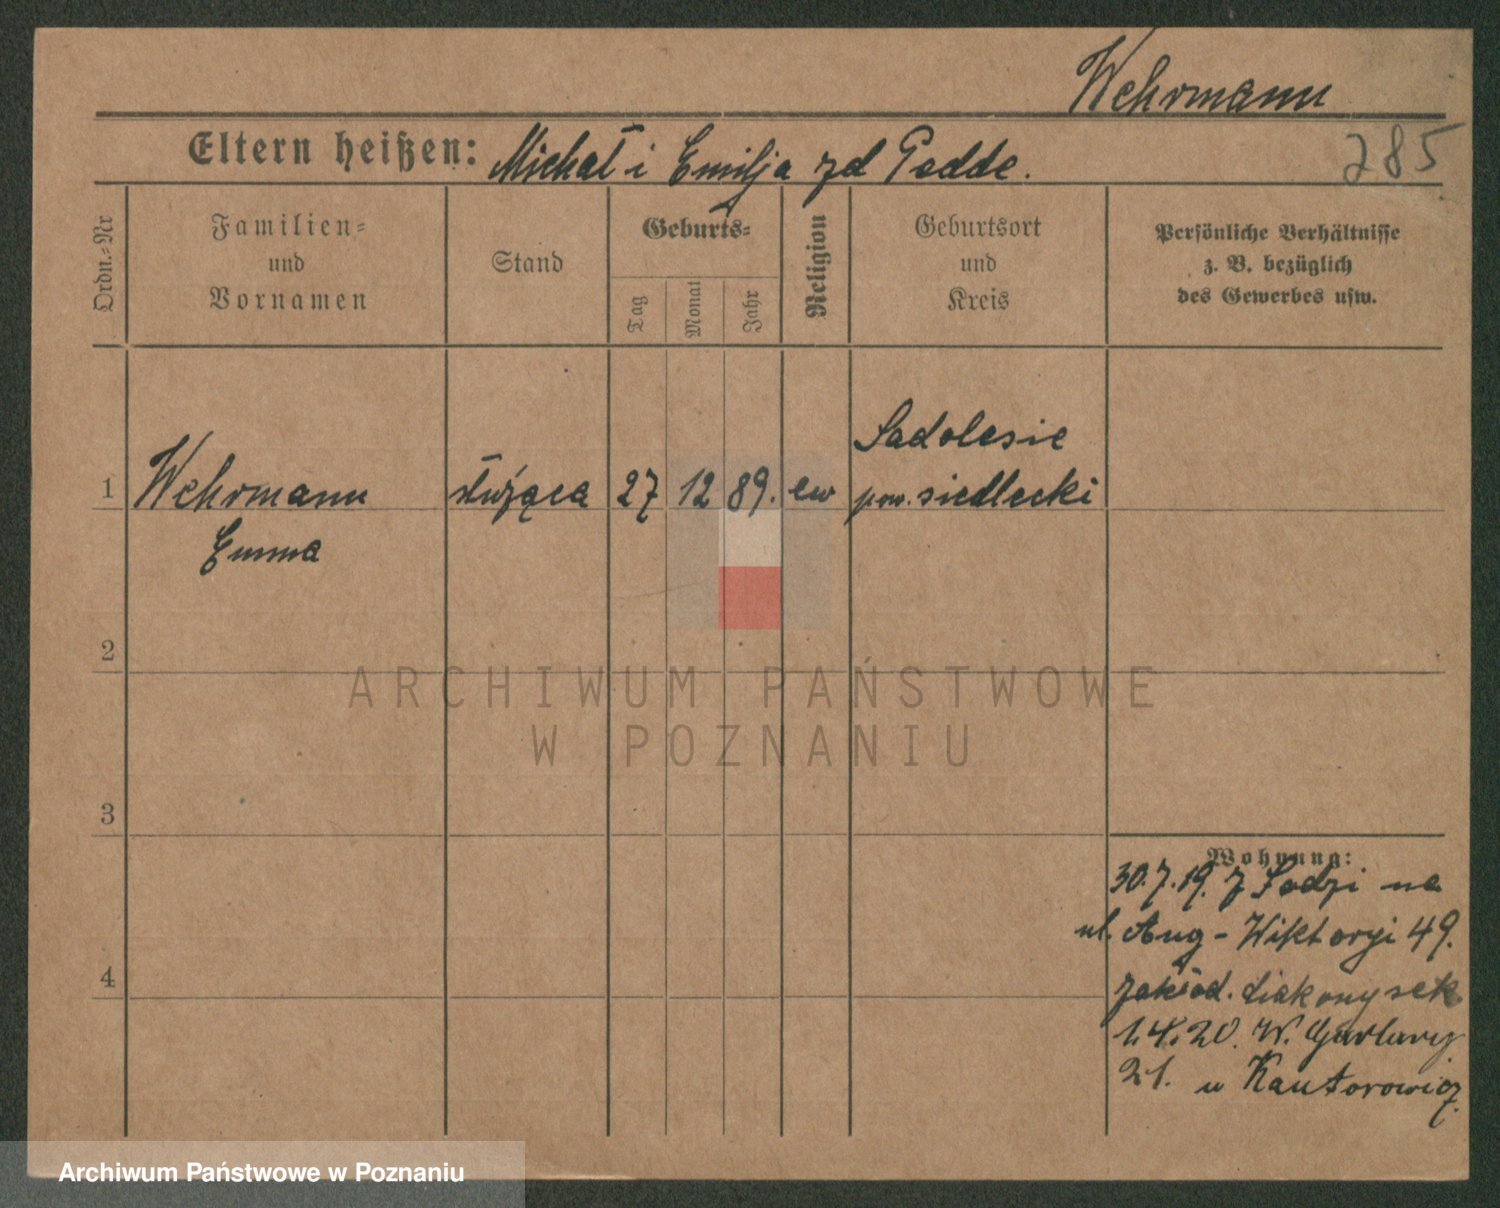 Wehrmann
Eltern heißen: Michał i Emilja zd Padde.
285
Ordn.-Nr
Familien-
und
Vornamen
Stand
Geburts-
Tag
Monat
Jahr
Religion
Geburtsort
und
Kreis
Persönliche Verhältnisse
z. B. bezüglich
des Gewerbes usw.
1
Wehrmann
Emma
służąca
27
12
89.
ew
Sadolesie
pow. siedlecki
2
3
4
Wohnung:
30.7.19. z Łodzi na
ul. Aug-Wiktoryi 49.
zakład. diakonysek
1.4.20. W. Garbary
21. u Kantorowicz.
ARCHIWUM PAŃSTWOWE
W POZNANIU
Archiwum Państwowe w Poznaniu